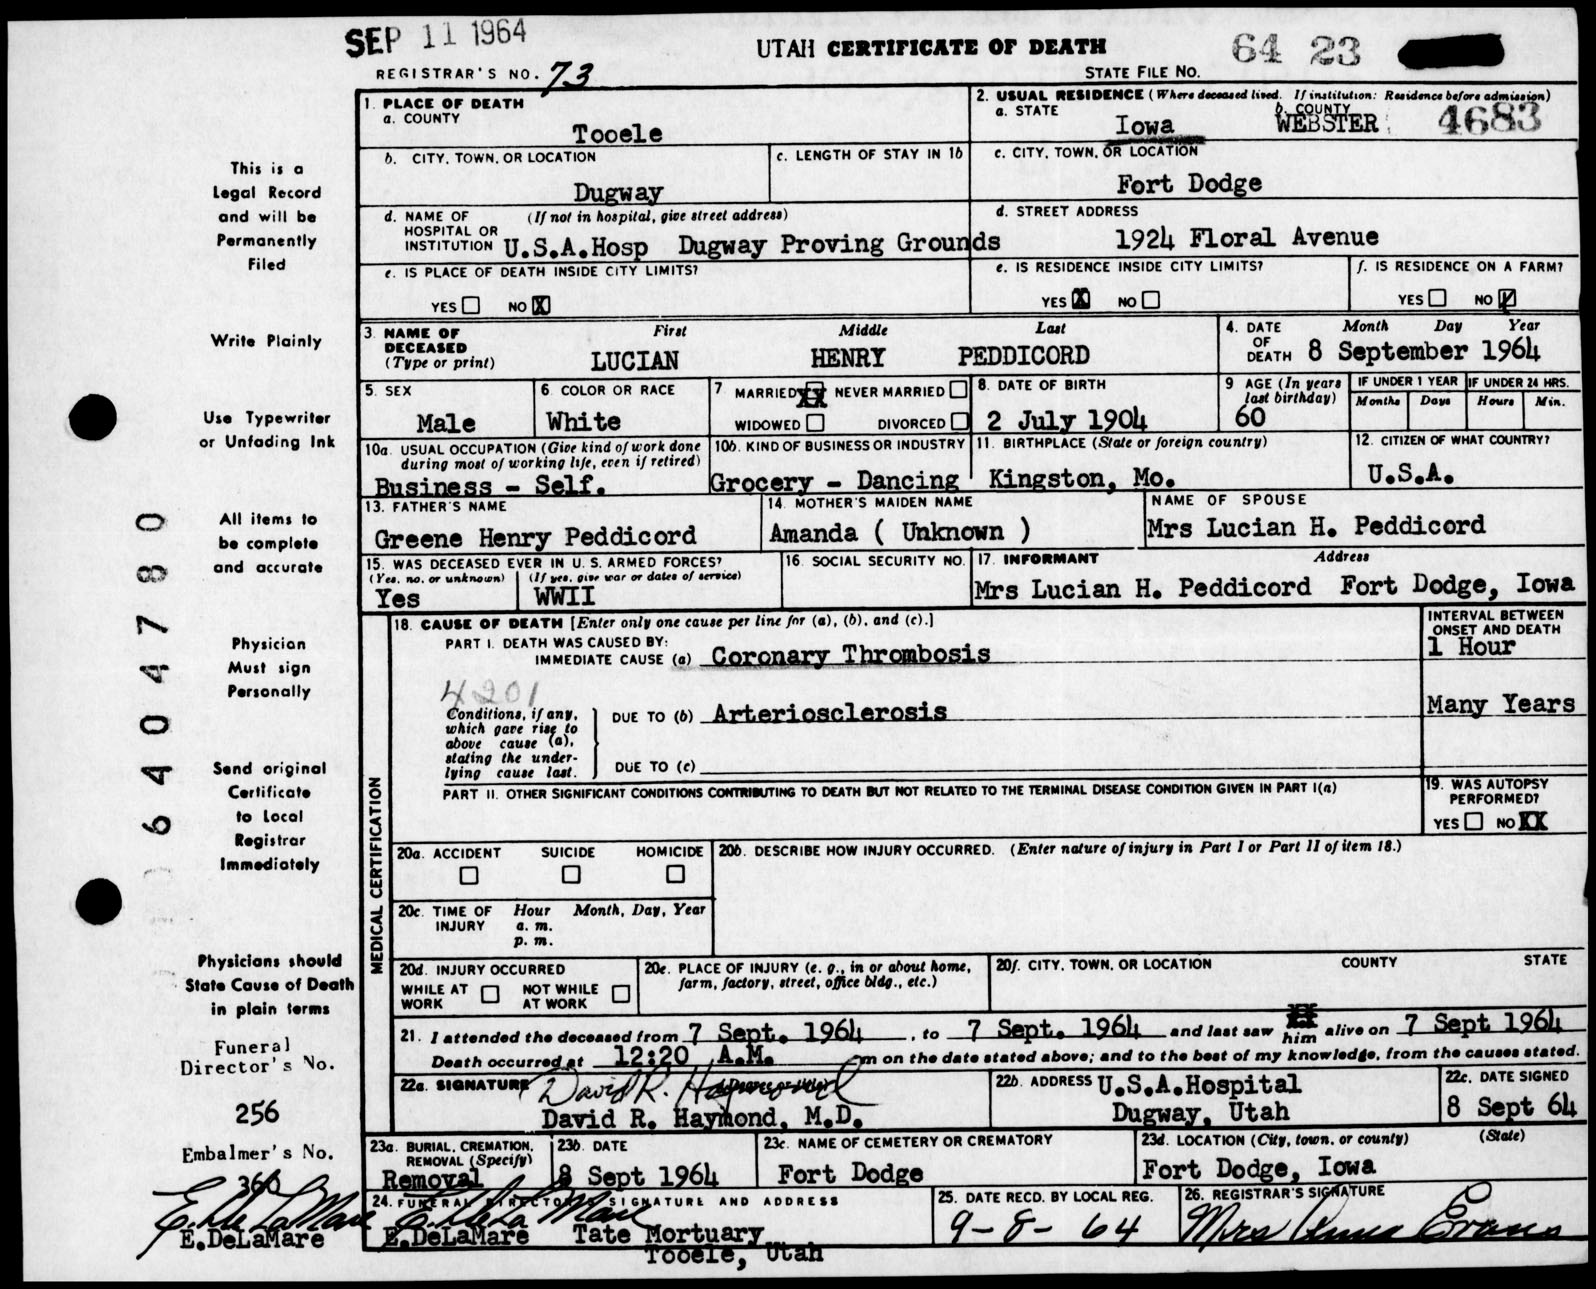 SEP 11 1964
UTAH CERTIFICATE OF DEATH
64 23
REGISTRAR'S NO. 73
STATE FILE NO.
4683
1. PLACE OF DEATH
a. COUNTY
Tooele
2. USUAL RESIDENCE (Where deceased lived. If institution: Residence before admission)
a. STATE
Iowa
b. COUNTY
WEBSTER
b. CITY, TOWN, OR LOCATION
Dugway
c. LENGTH OF STAY IN 1b
c. CITY, TOWN, OR LOCATION
Fort Dodge
d. NAME OF HOSPITAL OR INSTITUTION
(If not in hospital, give street address)
U.S.A.Hosp Dugway Proving Grounds
d. STREET ADDRESS
1924 Floral Avenue
e. IS PLACE OF DEATH INSIDE CITY LIMITS?
YES NO X
e. IS RESIDENCE INSIDE CITY LIMITS?
YES X NO
f. IS RESIDENCE ON A FARM?
YES NO
3. NAME OF DECEASED (Type or print)
First Middle Last
LUCIAN HENRY PEDDICORD
4. DATE OF DEATH
Month Day Year
8 September 1964
5. SEX
Male
6 COLOR OR RACE
White
7 MARRIED XX NEVER MARRIED
WIDOWED DIVORCED
8. DATE OF BIRTH
2 July 1904
9 AGE (In years last birthday)
60
IF UNDER 1 YEAR
Months Days
IF UNDER 24 HRS.
Hours Min.
10a. USUAL OCCUPATION (Give kind of work done during most of working life, even if retired)
Business - Self.
10b. KIND OF BUSINESS OR INDUSTRY
Grocery - Dancing
11. BIRTHPLACE (State or foreign country)
Kingston, Mo.
12. CITIZEN OF WHAT COUNTRY?
U.S.A.
13. FATHER'S NAME
Greene Henry Peddicord
14. MOTHER'S MAIDEN NAME
Amanda ( Unknown )
NAME OF SPOUSE
Mrs Lucian H. Peddicord
15. WAS DECEASED EVER IN U. S. ARMED FORCES?
(Yes, no, or unknown) (If yes, give war or dates of service)
Yes WWII
16. SOCIAL SECURITY NO.
17. INFORMANT Address
Mrs Lucian H. Peddicord Fort Dodge, Iowa
MEDICAL CERTIFICATION
18. CAUSE OF DEATH [Enter only one cause per line for (a), (b), and (c).]
PART I. DEATH WAS CAUSED BY:
IMMEDIATE CAUSE (a) Coronary Thrombosis
INTERVAL BETWEEN ONSET AND DEATH
1 Hour
4201
Conditions, if any, which gave rise to above cause (a), stating the underlying cause last.
DUE TO (b) Arteriosclerosis
Many Years
DUE TO (c)
PART II. OTHER SIGNIFICANT CONDITIONS CONTRIBUTING TO DEATH BUT NOT RELATED TO THE TERMINAL DISEASE CONDITION GIVEN IN PART I(a)
19. WAS AUTOPSY PERFORMED?
YES NO XX
20a. ACCIDENT SUICIDE HOMICIDE
20b. DESCRIBE HOW INJURY OCCURRED. (Enter nature of injury in Part I or Part II of item 18.)
20c. TIME OF INJURY
Hour Month, Day, Year
a. m.
p. m.
20d. INJURY OCCURRED
WHILE AT WORK NOT WHILE AT WORK
20e. PLACE OF INJURY (e. g., in or about home, farm, factory, street, office bldg., etc.)
20f. CITY, TOWN, OR LOCATION COUNTY STATE
21. I attended the deceased from 7 Sept. 1964, to 7 Sept. 1964 and last saw him alive on 7 Sept 1964
Death occurred at 12:20 A.M. m on the date stated above; and to the best of my knowledge, from the causes stated.
22a. SIGNATURE
David R. Haymond
David R. Haymond, M.D.
22b. ADDRESS U.S.A.Hospital
Dugway, Utah
22c. DATE SIGNED
8 Sept 64
23a. BURIAL, CREMATION, REMOVAL (Specify)
Removal
23b. DATE
8 Sept 1964
23c. NAME OF CEMETERY OR CREMATORY
Fort Dodge
23d. LOCATION (City, town, or county) (State)
Fort Dodge, Iowa
24. FUNERAL DIRECTOR'S SIGNATURE AND ADDRESS
E. DeLaMare
E.DeLaMare Tate Mortuary
Tooele, Utah
25. DATE RECD. BY LOCAL REG.
9-8-64
26. REGISTRAR'S SIGNATURE
Mrs Anna Evans
This is a
Legal Record
and will be
Permanently
Filed
Write Plainly
Use Typewriter
or Unfading Ink
All items to
be complete
and accurate
Physician
Must sign
Personally
Send original
Certificate
to Local
Registrar
Immediately
Physicians should
State Cause of Death
in plain terms
Funeral
Director's No.
256
Embalmer's No.
360
E. DeLaMare
E.DeLaMare
6404780